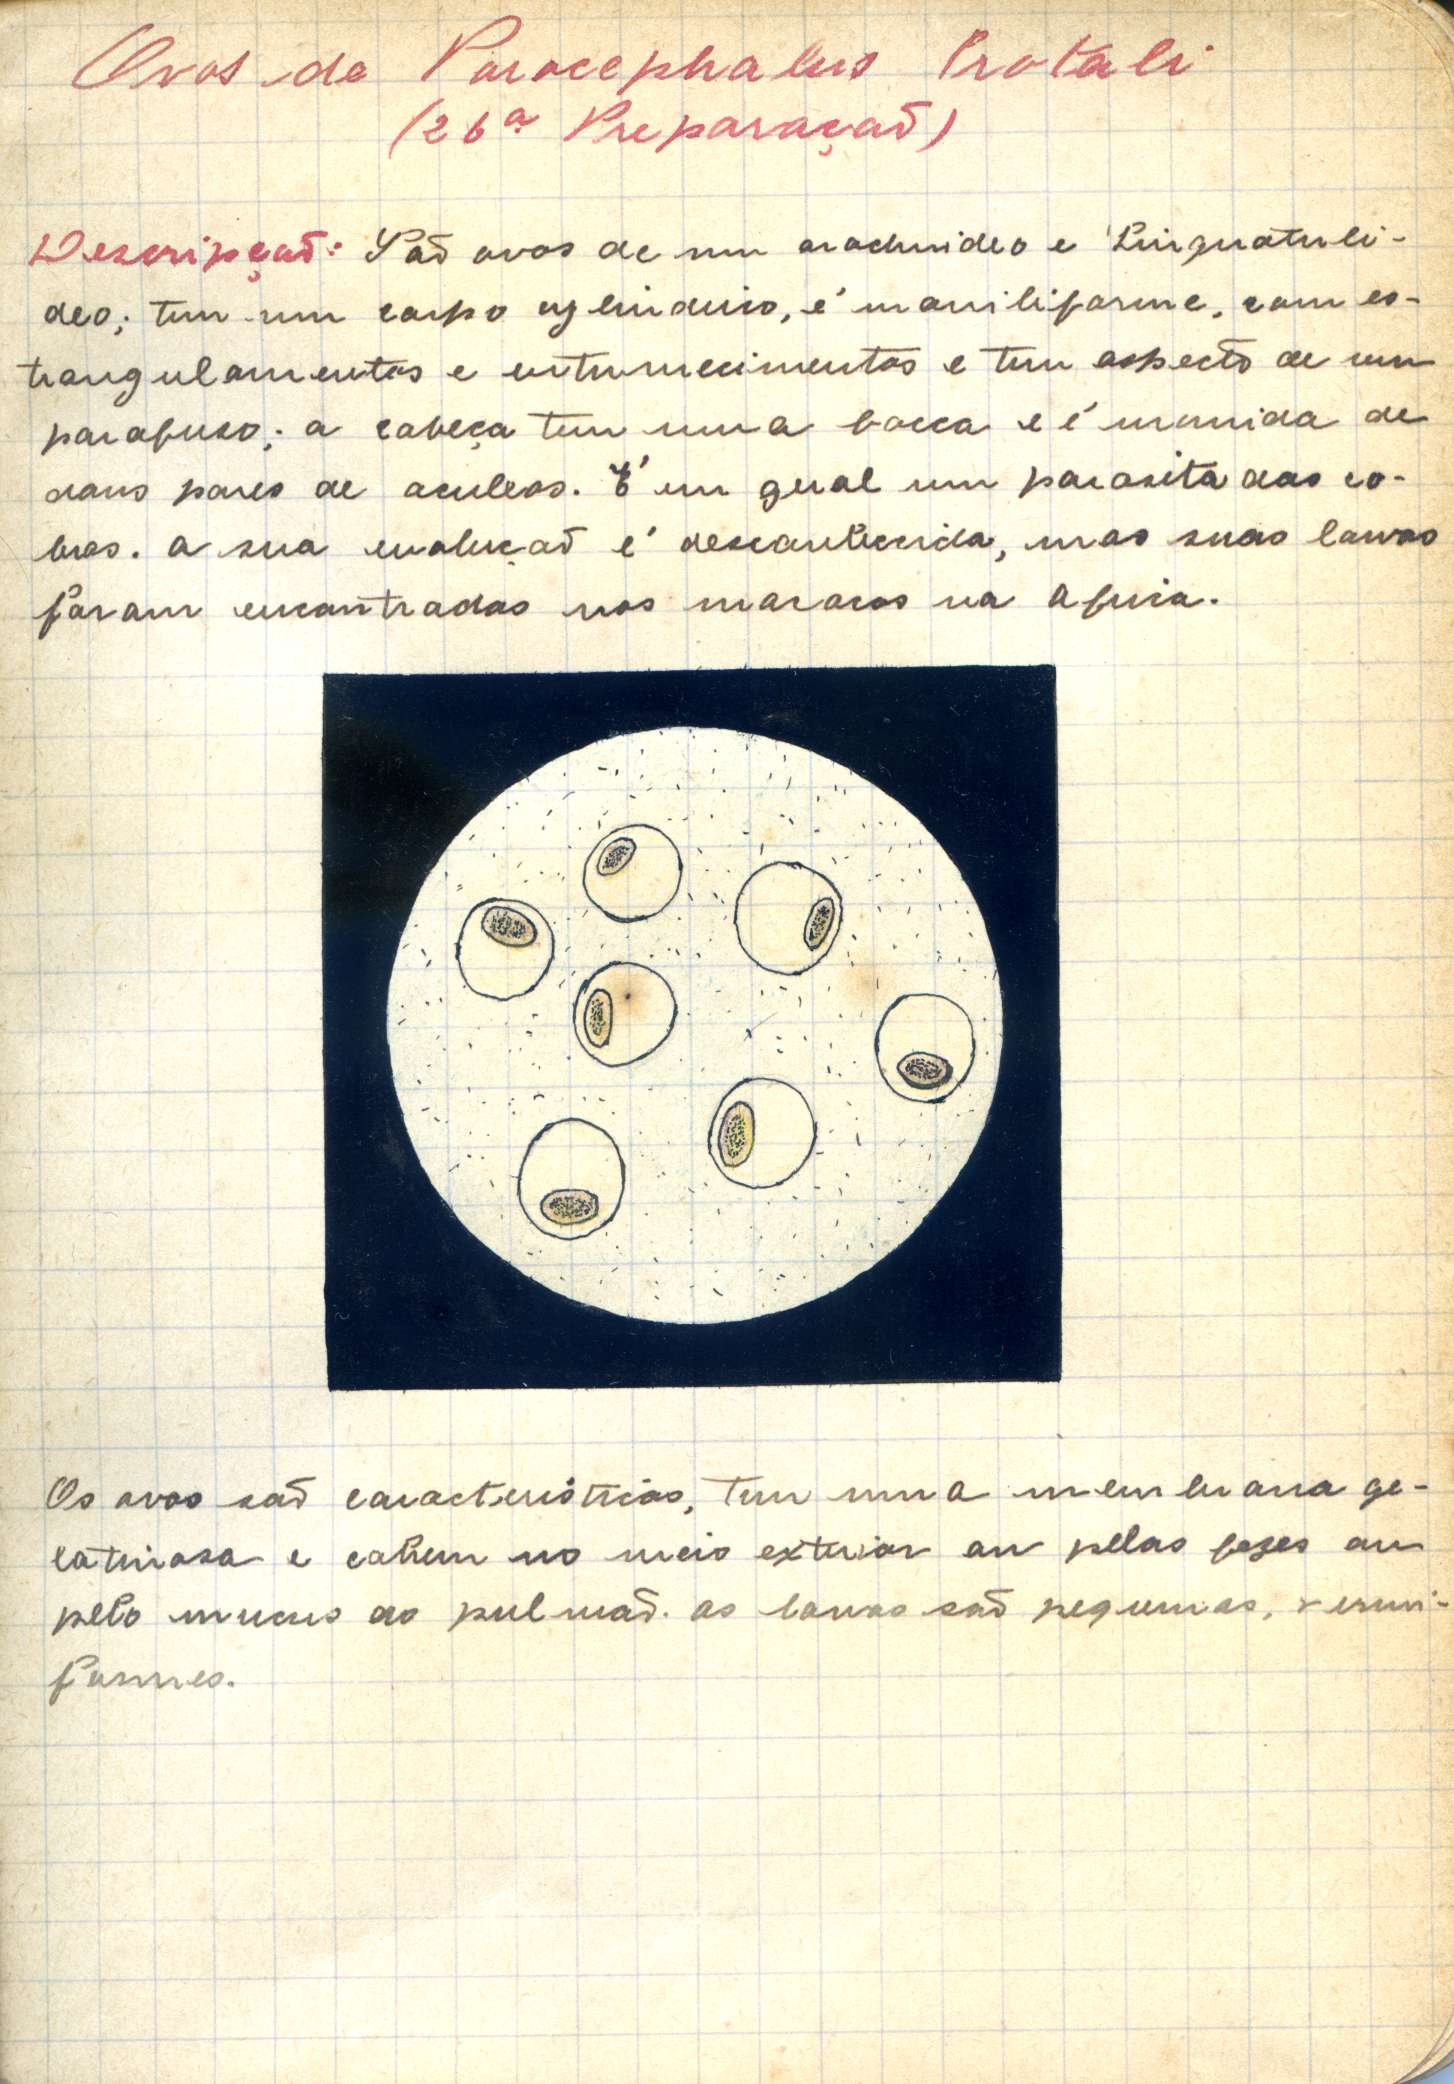 Ovos de Porocephalus Crotali
(26ª Preparação)
Descripção: São ovos de um arachnideo e Linguatuli-
deo; tem um corpo cylindrico, é moniliforme, com es-
trangulamentos e entumecimentos e tem aspecto de um
parafuso; a cabeça tem uma bocca e é munida de
dous pares de aculeos. É em geral um parasita das co-
bras. A sua evolução é desconhecida, mas suas larvas
foram encontradas nos macacos na Africa.
Os ovos são caracteristicos, tem uma membrana ge-
latinosa e cahem no meio exterior ou pelas fezes ou
pelo mucus do pulmão. As larvas são pequenas, vermi-
formes.